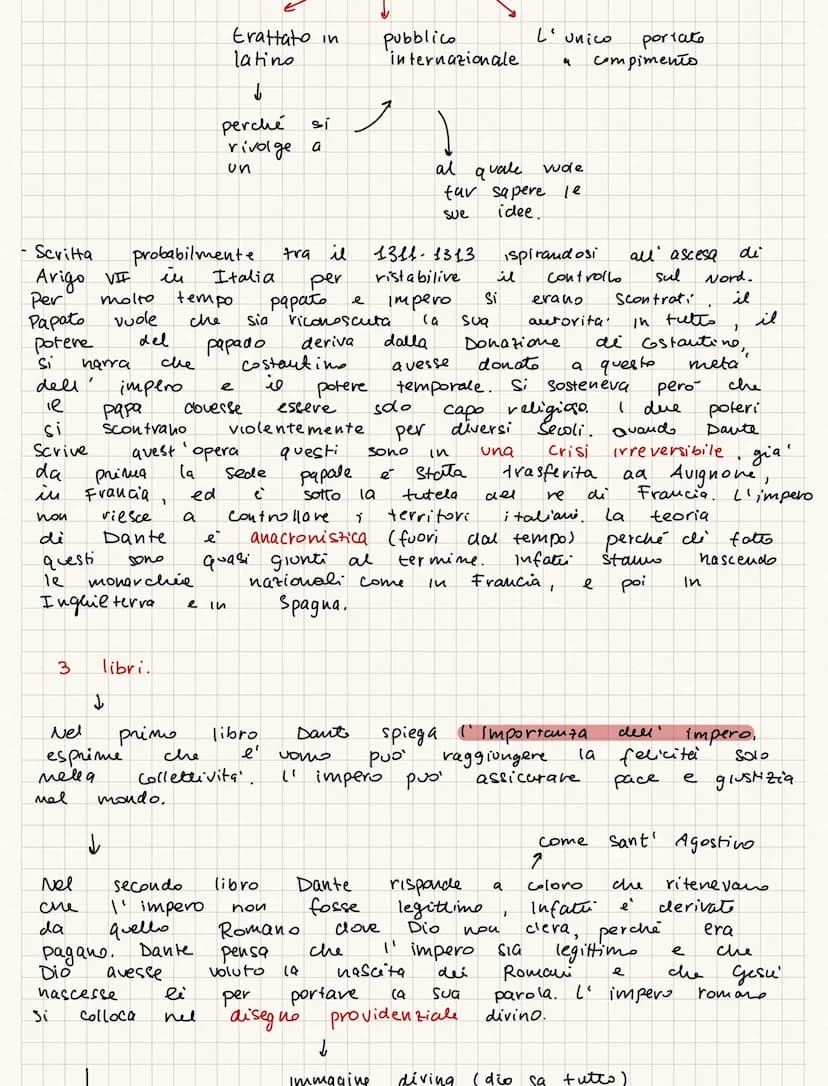 trattato in
latino
pubblico
internazionale
L'unico portato
a compimento
perché si
rivolge a
un
al quale vuole
far sapere le
sue idee.
- Scritta probabilmente tra il 1311-1313 ispirandosi all'ascesa di
Arigo VII in Italia per ristabilire il controllo sul Nord.
Per molto tempo papato e impero si erano scontrati. il
Papato vuole che sia riconoscuta la sua autorità in tutto, il
potere del papado deriva dalla Donazione di Costantino,
si narra che costantino avesse donato a questo metà
dell'impero e il potere temporale. Si sosteneva però che
il papa dovesse essere solo capo religioso. I due poteri
si scontrano violentemente per diversi secoli. Quando Dante
scrive quest'opera questi sono in una crisi irreversibile, già
da prima la sede papale è stata trasferita ad Avignone,
in Francia, ed è sotto la tutela del re di Francia. L'impero
non riesce a controllare i territori italiani. La teoria
di Dante è anacronistica (fuori dal tempo) perché di fatto
questi sono quasi giunti al termine. Infatti stanno nascendo
le monarchie nazionali come in Francia, e poi in
Inghilterra e in Spagna.
3 libri.
Nel primo libro Dante spiega l'importanza dell'impero,
esprime che l'uomo può raggiungere la felicità solo
nella collettività. L'impero può assicurare pace e giustizia
nel mondo.
come Sant'Agostino
Nel secondo libro Dante risponde a coloro che ritenevano
che l'impero non fosse legittimo, Infatti è derivato
da quello Romano dove Dio non c'era, perché era
pagano. Dante pensa che l'impero sia legittimo e che
Dio avesse voluto la nascita dei Romani e che Gesù
nascesse lì per portare la sua parola. L'impero romano
si colloca nel disegno providenziale divino.
immagine divina (dio sa tutto)